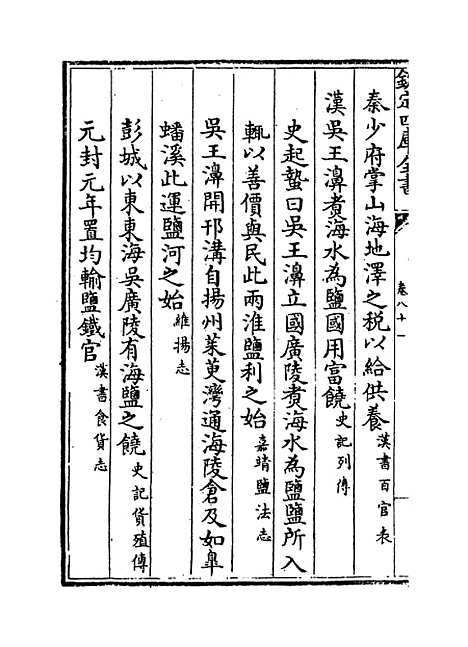 欽定四庫全書
卷八十一
秦少府掌山海地澤之税以給供養漢書百官表
漢吳王濞煑海水為鹽國用富饒史記列傳
史起蟄曰吳王濞立國廣陵煑海水為鹽鹽所入
輒以善價與民此兩淮鹽利之始嘉靖鹽法志
吳王濞開邗溝自揚州茱萸灣通海陵倉及如臯
蟠溪此運鹽河之始維揚志
彭城以東東海吳廣陵有海鹽之饒史記貨殖傳
元封元年置均輸鹽鐵官漢書食貨志